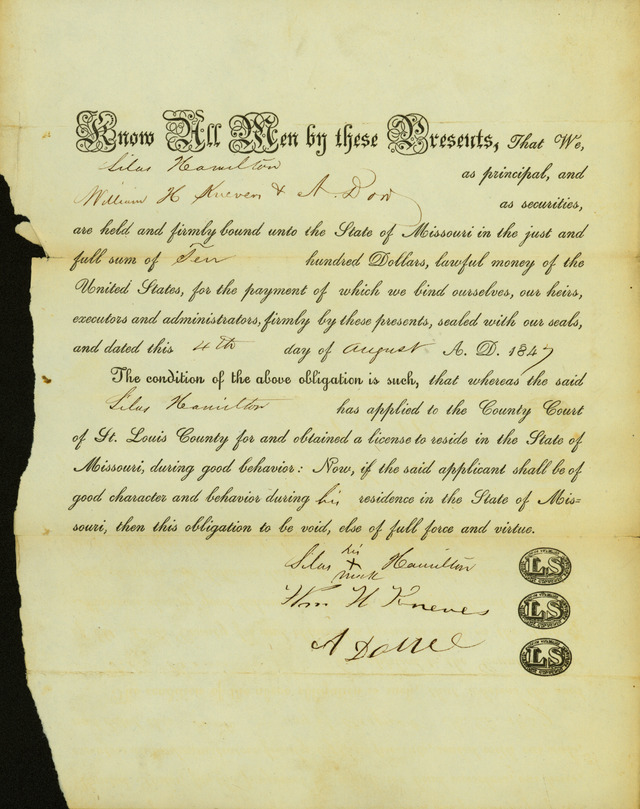 Know All Men by these Presents, That We,
Silas Hamilton as principal, and
William H Knevers & A. Dow as securities,
are held and firmly bound unto the State of Missouri in the just and
full sum of Ten hundred Dollars, lawful money of the
United States, for the payment of which we bind ourselves, our heirs,
executors and administrators, firmly by these presents, sealed with our seals,
and dated this 4th day of August A. D. 1847
The condition of the above obligation is such, that whereas the said
Silas Hamilton has applied to the County Court
of St. Louis County for and obtained a license to reside in the State of
Missouri, during good behavior: Now, if the said applicant shall be of
good character and behavior during his residence in the State of Mis=
souri, then this obligation to be void, else of full force and virtue.
his
Silas + Hamilton LS
mark
Wm H Kneves LS
A LS